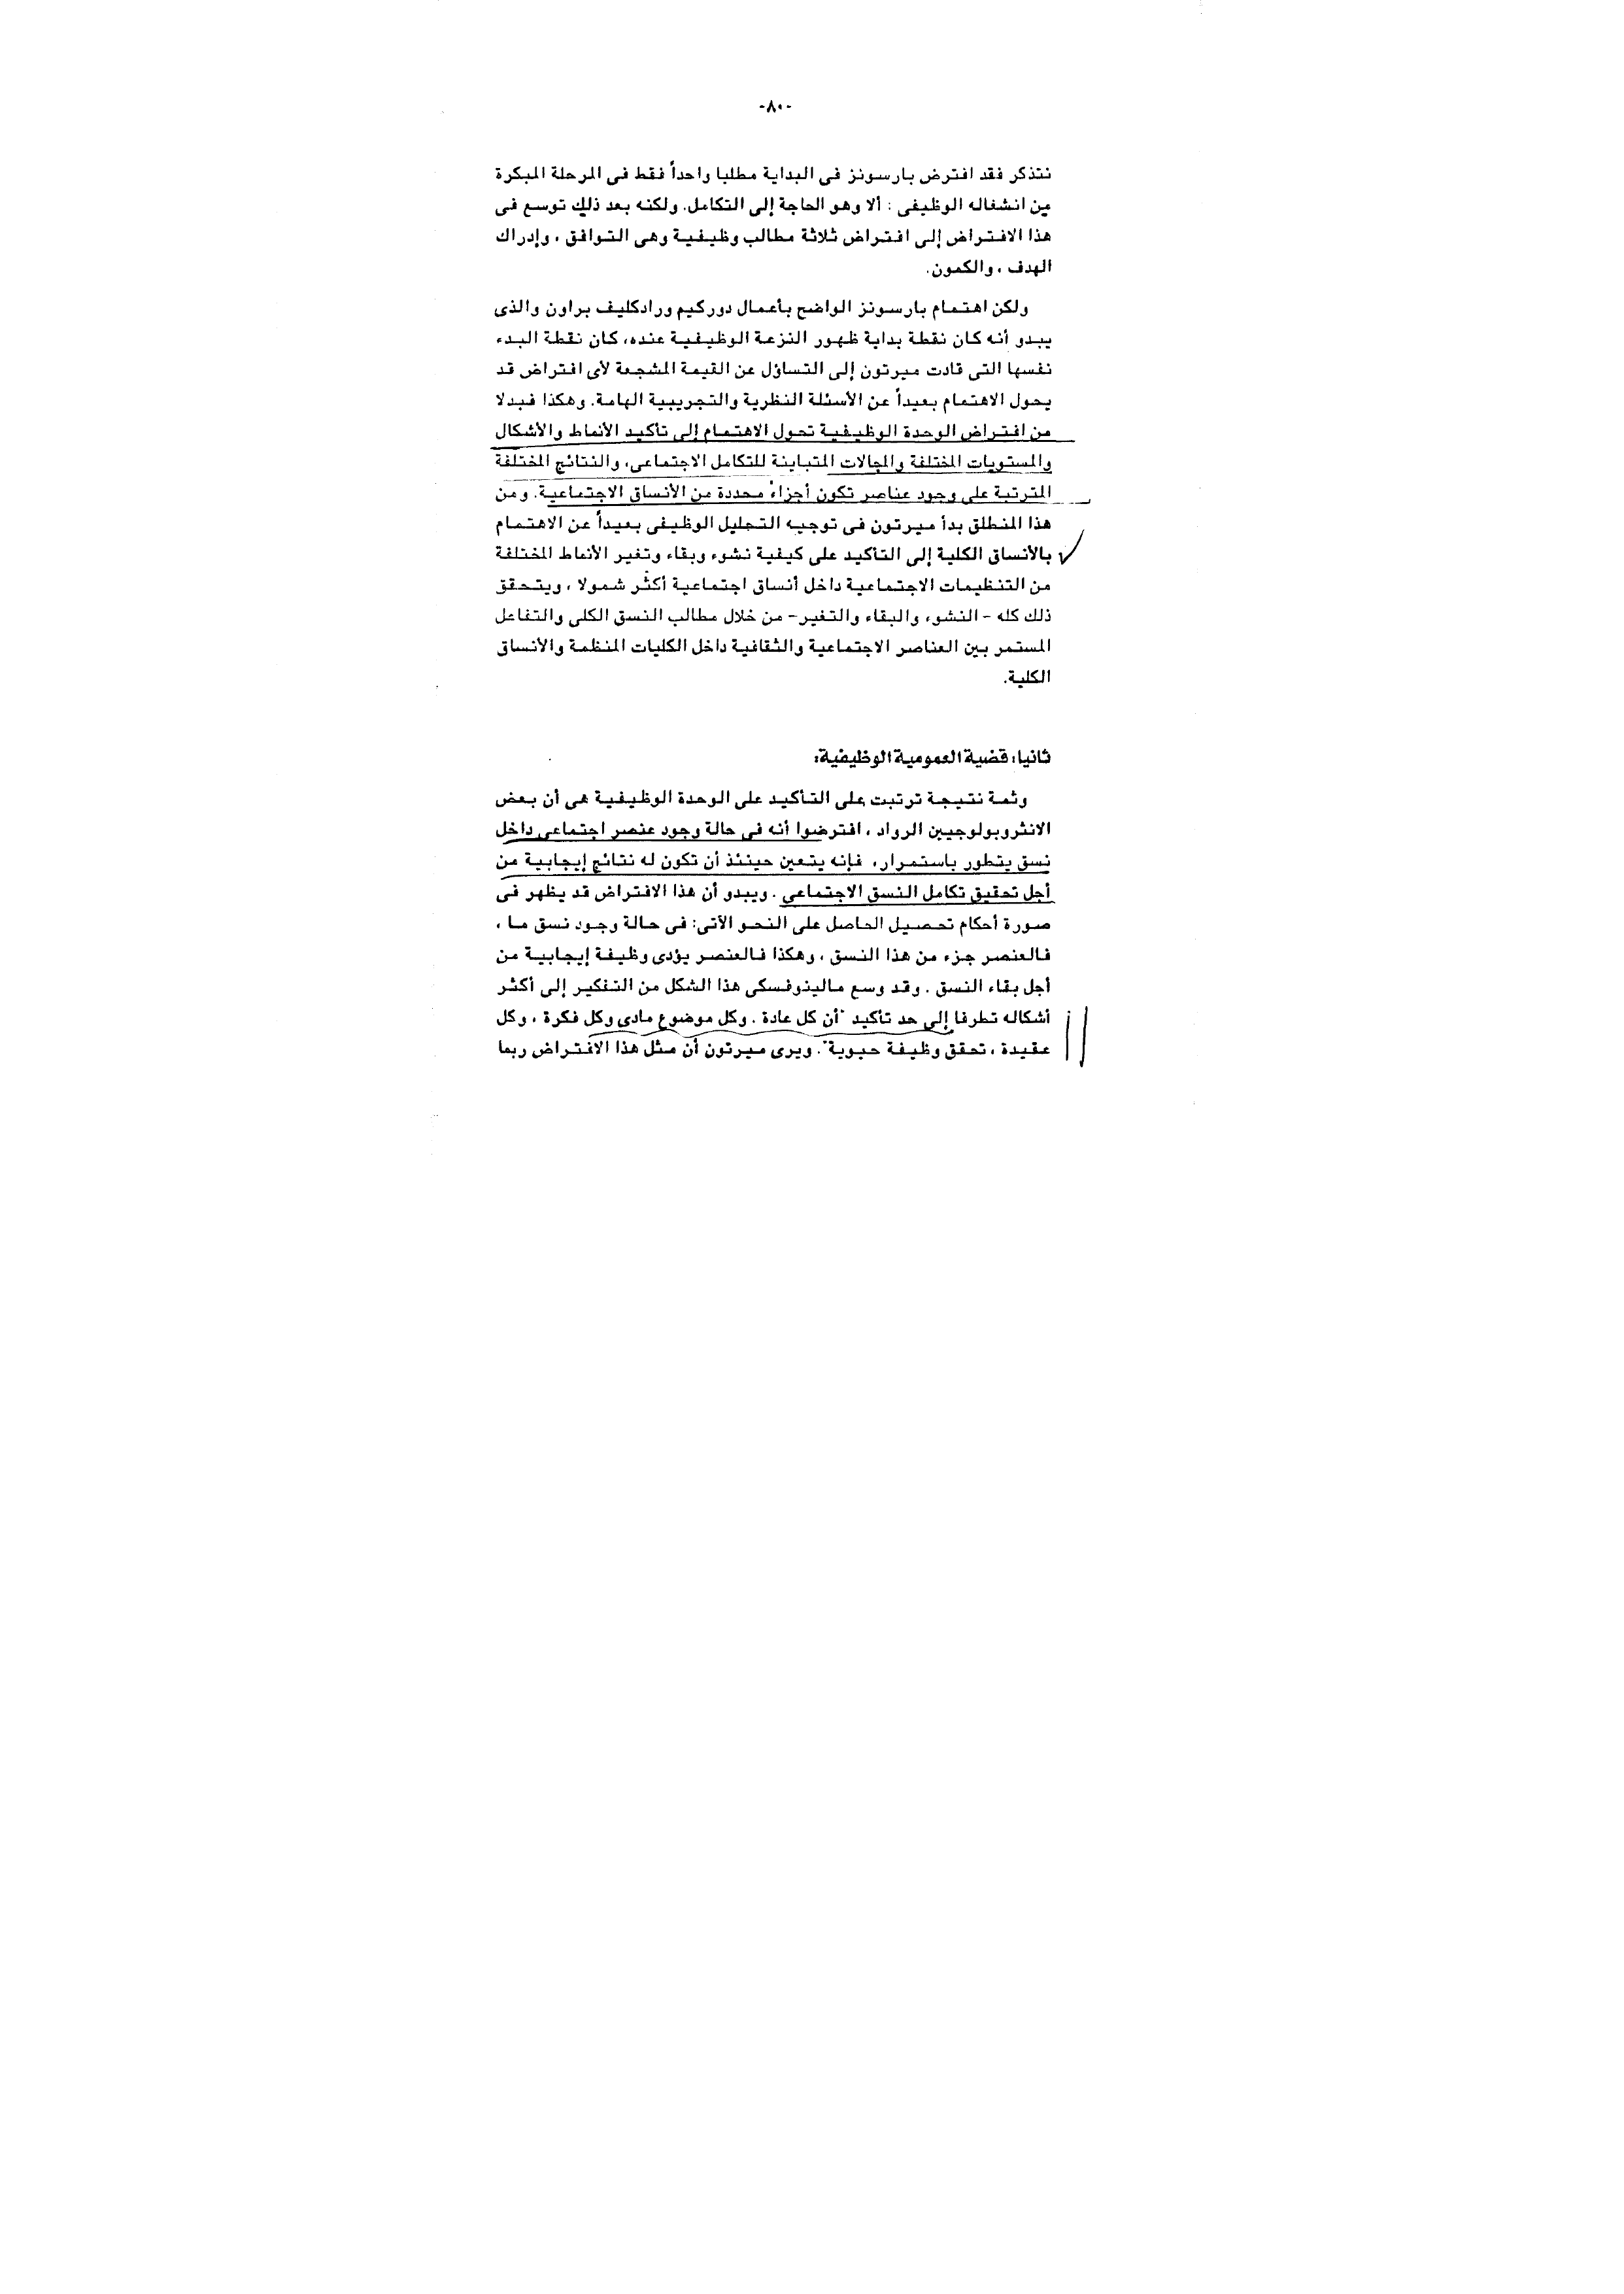 -٨٠-
نتذكر فقد افترض بارسونز فى البداية مطلبا واحداً فقط فى المرحلة المبكرة
من انشغاله الوظيفى : ألا وهو الحاجة إلى التكامل. ولكنه بعد ذلك توسع فى
هذا الافتراض إلى افتراض ثلاثة مطالب وظيفية وهى التوافق ، وإدراك
الهدف ، والكمون.
ولكن اهتمام بارسونز الواضح بأعمال دوركيم ورادكليف براون والذى
يبدو أنه كان نقطة بداية ظهور النزعة الوظيفية عنده، كان نقطة البدء
نفسها التى قادت ميرتون إلى التساؤل عن القيمة المشجعة لأى افتراض قد
يحول الاهتمام بعيداً عن الأسئلة النظرية والتجريبية الهامة. وهكذا فبدلا
من افتراض الوحدة الوظيفية تحول الاهتمام إلى تأكيد الأنماط والأشكال
والمستويات المختلفة والمجالات المتباينة للتكامل الاجتماعى، والنتائج المختلفة
المترتبة على وجود عناصر تكون أجزاءً محددة من الأنساق الاجتماعية. ومن
هذا المنطلق بدأ ميرتون فى توجيه التحليل الوظيفى بعيداً عن الاهتمام
بالأنساق الكلية إلى التأكيد على كيفية نشوء وبقاء وتغير الأنماط المختلفة
من التنظيمات الاجتماعية داخل أنساق اجتماعية أكثر شمولا ، ويتحقق
ذلك كله - النشوء والبقاء والتغير- من خلال مطالب النسق الكلى والتفاعل
المستمر بين العناصر الاجتماعية والثقافية داخل الكليات المنظمة والأنساق
الكلية.
ثانيا: قضية العمومية الوظيفية:
وثمة نتيجة ترتبت على التأكيد على الوحدة الوظيفية هى أن بعض
الانثروبولوجيين الرواد ، افترضوا أنه فى حالة وجود عنصر اجتماعى داخل
نسق يتطور باستمرار، فإنه يتعين حينئذ أن تكون له نتائج إيجابية من
أجل تحقيق تكامل النسق الاجتماعى . ويبدو أن هذا الافتراض قد يظهر فى
صورة أحكام تحصيل الحاصل على النحو الآتى: فى حالة وجود نسق ما ،
فالعنصر جزء من هذا النسق ، وهكذا فالعنصر يؤدى وظيفة إيجابية من
أجل بقاء النسق . وقد وسع مالينوفسكى هذا الشكل من التفكير إلى أكثر
أشكاله تطرفا إلى حد تأكيد "أن كل عادة . وكل موضوع مادى وكل فكرة ، وكل
عقيدة ، تحقق وظيفة حيوية". ويرى ميرتون أن مثل هذا الافتراض ربما